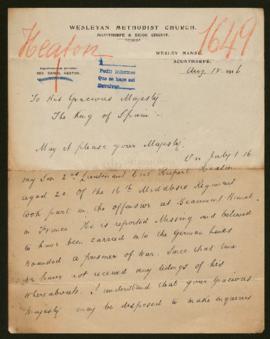 WESLEYAN METHODIST CHURCH.
SCUNTHORPE & BRIGG CIRCUIT.
Heaton
1649
WESLEY MANSE,
SCUNTHORPE.
REV. DANIEL HEATON.
Aug. 18 1916
Pedir informes
Que se haga así
To His Gracious Majesty
The King of Spain.
May it please your Majesty.
On July 1. 16
my Son 2nd Lieutenant Eric Rupert Heaton
aged 20. Of the 16th Middlesex Regiment
took part in the offensive at Beaumont Hamel
in France. He is reported Missing and believed
to have been carried into the German Lines
wounded a prisoner of War. Since that time
we have not received any tidings of his
whereabouts. I understand that your Gracious
Majesty may be disposed to make enquiries